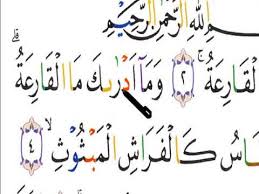 اللهِ الرَّحْمٰنِ الرَّحِيْمِ
لْقَارِعَةُ ۚ ٢ وَمَآ اَدْرٰىكَ مَا الْقَارِعَةُ ۗ
اسُ كَالْفَرَاشِ الْمَبْثُوْثِ ۙ ٤